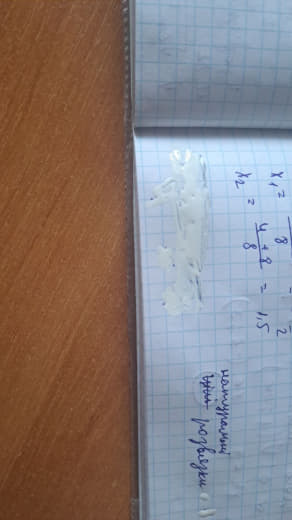 x₁ = /8 = /2
x₂ = (4+8)/8 = 1,5
натуральні
цілі розв'язки